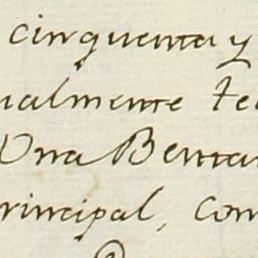 cinquenta y
ualmente te
Una Bernar
rincipal, com